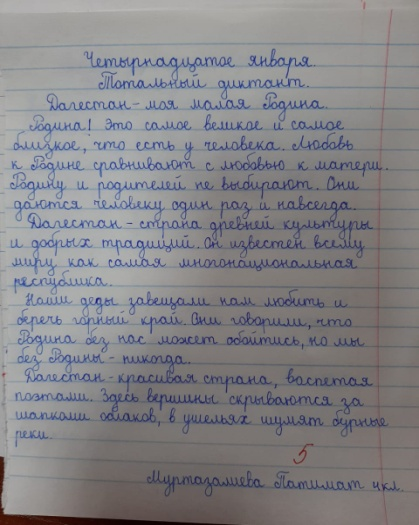 Четырнадцатое января.
Тотальный диктант.
Дагестан - моя малая Родина.
Родина! Это самое великое и самое
близкое, что есть у человека. Любовь
к Родине сравнивают с любовью к матери.
Родину и родителей не выбирают. Они
даются человеку один раз и навсегда.
Дагестан - страна древней культуры
и добрых традиций. Он известен всему
миру как самая многонациональная
республика.
Наши деды завещали нам любить и
беречь горный край. Они говорили, что
Родина без нас может обойтись, но мы
без Родины - никогда.
Дагестан - красивая страна, воспетая
поэтами. Здесь вершины скрываются за
шапками облаков, в ущельях шумят бурные
реки.
5
Муртазалиева Патимат 4 кл.